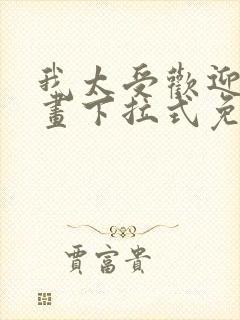 我太受歡迎
畫下拉式免
賈富貴